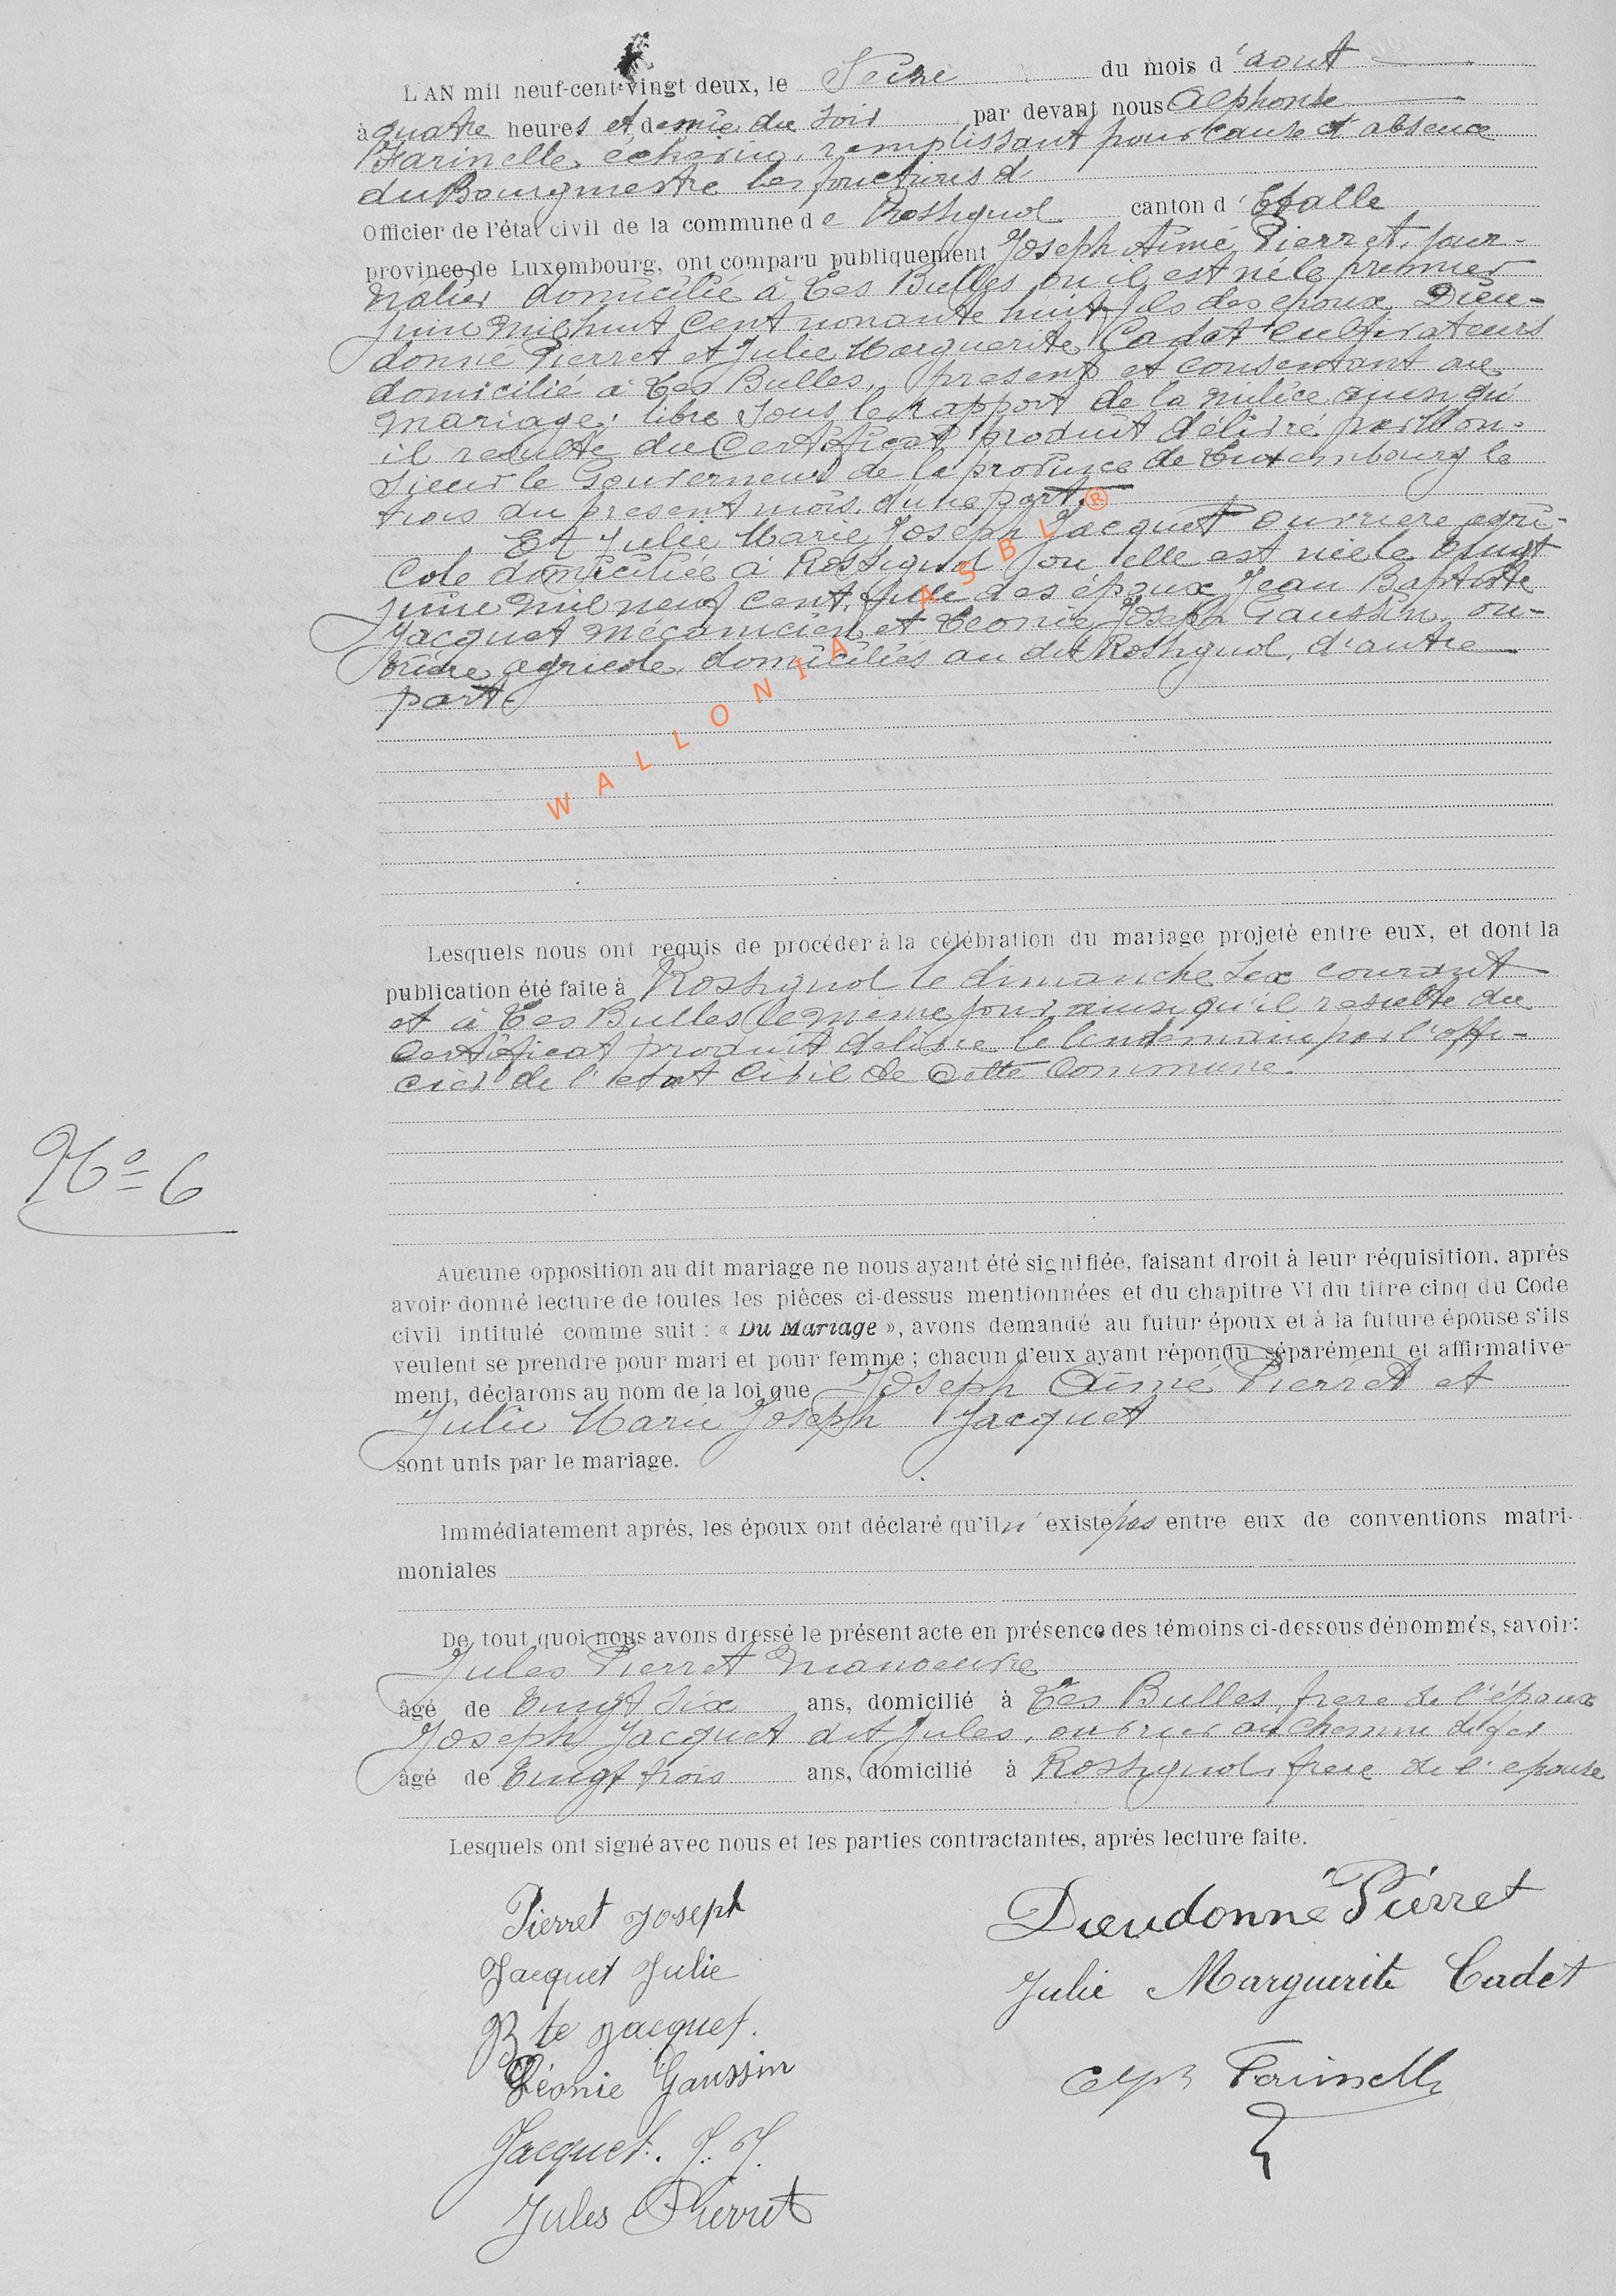 L'AN mil neuf-cent-vingt deux, le Seize du mois d'aout
à quatre heures et demie du soir par devant nous Alphonse
Farinelle, échevin, remplissant pour cause d'absence
du Bourgmestre les fonctions d'
Officier de l'état civil de la commune de Rossignol canton d'Etalle
province de Luxembourg, ont comparu publiquement Joseph Aimé Pierret, jour-
nalier domicilié à Les Bulles où il est né le premier
juin mil huit cent nonante huit fils des époux Dieu-
donné Pierret et Julie Marguerite Cadet cultivateurs
domicilié à Les Bulles, présent et consentant au
mariage; libre sous le rapport de la milice ainsi qu'
il resulte du certificat produit délivré par Mon-
sieur le Gouverneur de la province de Luxembourg le
trois du present mois, d'une part.
Et Julie Marie Joseph Jacquet ouvriere agri-
cole domiciliée à Rossignol où elle est née le vingt
juin mil neuf cent, fille des époux Jean Baptiste
Jacquet mécanicien et Léonie Joseph Gaussin, ou-
vrière agricole, domiciliés au dit Rossignol, d'autre
part.
WALLONIA ASBL ®
Lesquels nous ont requis de procéder à la célébration du mariage projeté entre eux, et dont la
publication été faite à Rossignol le dimanche six courant
et à Les Bulles le même jour ainsi qu'il resulte du
certificat produit délivré le lendemain par l'offi-
cier de l'etat civil de cette commune.
N° 6
Aucune opposition au dit mariage ne nous ayant été signifiée, faisant droit à leur réquisition, après
avoir donné lecture de toutes les pièces ci-dessus mentionnées et du chapitre VI du titre cinq du Code
civil intitulé comme suit : « Du Mariage », avons demandé au futur époux et à la future épouse s'ils
veulent se prendre pour mari et pour femme ; chacun d'eux ayant répondu séparément et affirmative-
ment, déclarons au nom de la loi que Joseph Aimé Pierret et
Julie Marie Joseph Jacquet
sont unis par le mariage.
Immédiatement après, les époux ont déclaré qu'il n'existe pas entre eux de conventions matri-
moniales
De tout quoi nous avons dressé le présent acte en présence des témoins ci-dessous dénommés, savoir :
Jules Pierret manoeuvre
âgé de vingt six ans, domicilié à Les Bulles, frere de l'époux
Joseph Jacquet dit Jules, ouvrier au chemin de fer
âgé de vingt trois ans, domicilié à Rossignol, frere de l'epouse
Lesquels ont signé avec nous et les parties contractantes, après lecture faite.
Pierret Joseph
Dieudonné Pierret
Jacquet Julie
Julie Marguerite Cadet
Bte Jacquet.
Léonie Gaussin
Alph Farinelle
Jacquet. J. J.
Jules Pierret